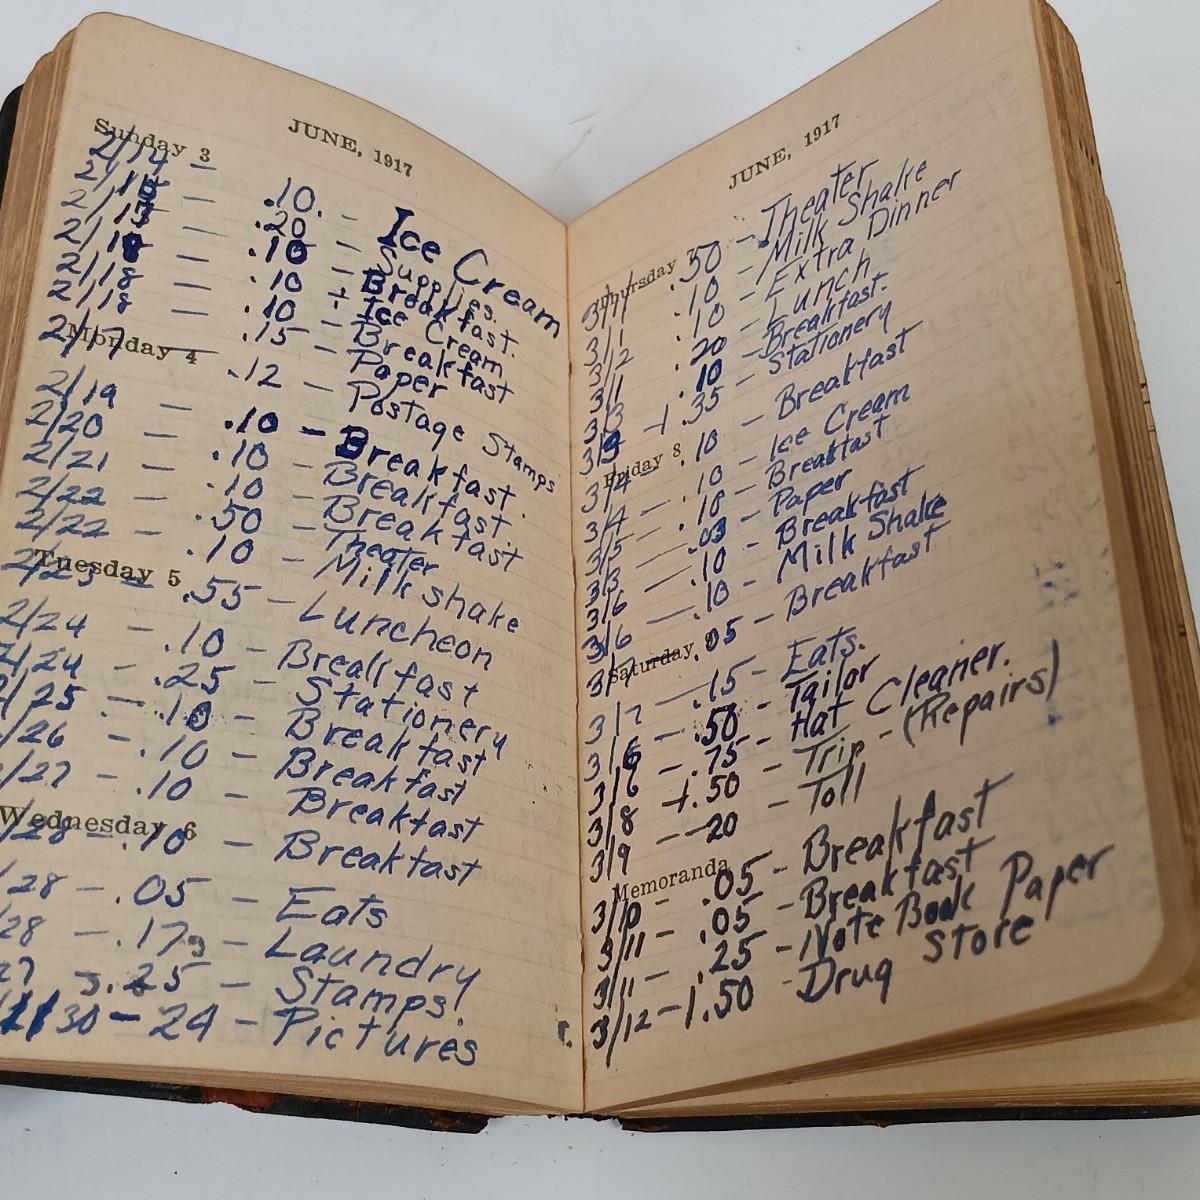 JUNE, 1917
Sunday 3
2/14 —
2/15 — .10. — Ice Cream
2/15 — .20 — Supplies.
2/18 — .10 — Breakfast.
2/18 — .10 + Ice Cream
2/18 — .10 — Breakfast
2/17 — .15 — Paper
Monday 4
.12 — Postage Stamps
2/19 — .10 — Breakfast.
2/20 — .10 — Breakfast.
2/21 — .10 — Breakfast
2/22 — .50 — Theater
2/22 — .10 — Milkshake
Tuesday 5
2/23 — .55 — Luncheon
2/24 — .10 — Breakfast
2/24 — .25 — Stationery
2/25 — .10 — Breakfast
/26 — .10 — Breakfast
/27 — .10 — Breakfast
Wednesday 6
/28 — .10 — Breakfast
/28 — .05 — Eats
28 — .17 — Laundry
27 — .25 — Stamps.
30 — 24 — Pictures
JUNE, 1917
Thursday 7
3/1 .50 — Theater
3/1 .10 — Milk Shake
3/2 .10 — Extra Dinner
3/1 .20 — Lunch
3/3 .10 — Breakfast.
3/3 — 1.35 — Stationery
Friday 8
3/4 — .10 — Breakfast
3/4 — .10 — Ice Cream
3/5 — .10 — Breakfast
3/3 — .03 — Paper
3/6 — .10 — Breakfast
3/6 — .10 — Milk Shake
Saturday 9
3/7 — .05 — Breakfast
3/7 — .15 — Eats.
3/6 — .50 — Tailor
3/6 — .75 — Hat Cleaner.
3/8 — 1.50 — Trip — (Repairs)
3/9 — 20 — Toll
Memoranda
3/10 — .05 — Breakfast
3/11 — .05 — Breakfast
3/11 — .25 — Note Book Paper
3/12 — 1.50 — Drug Store